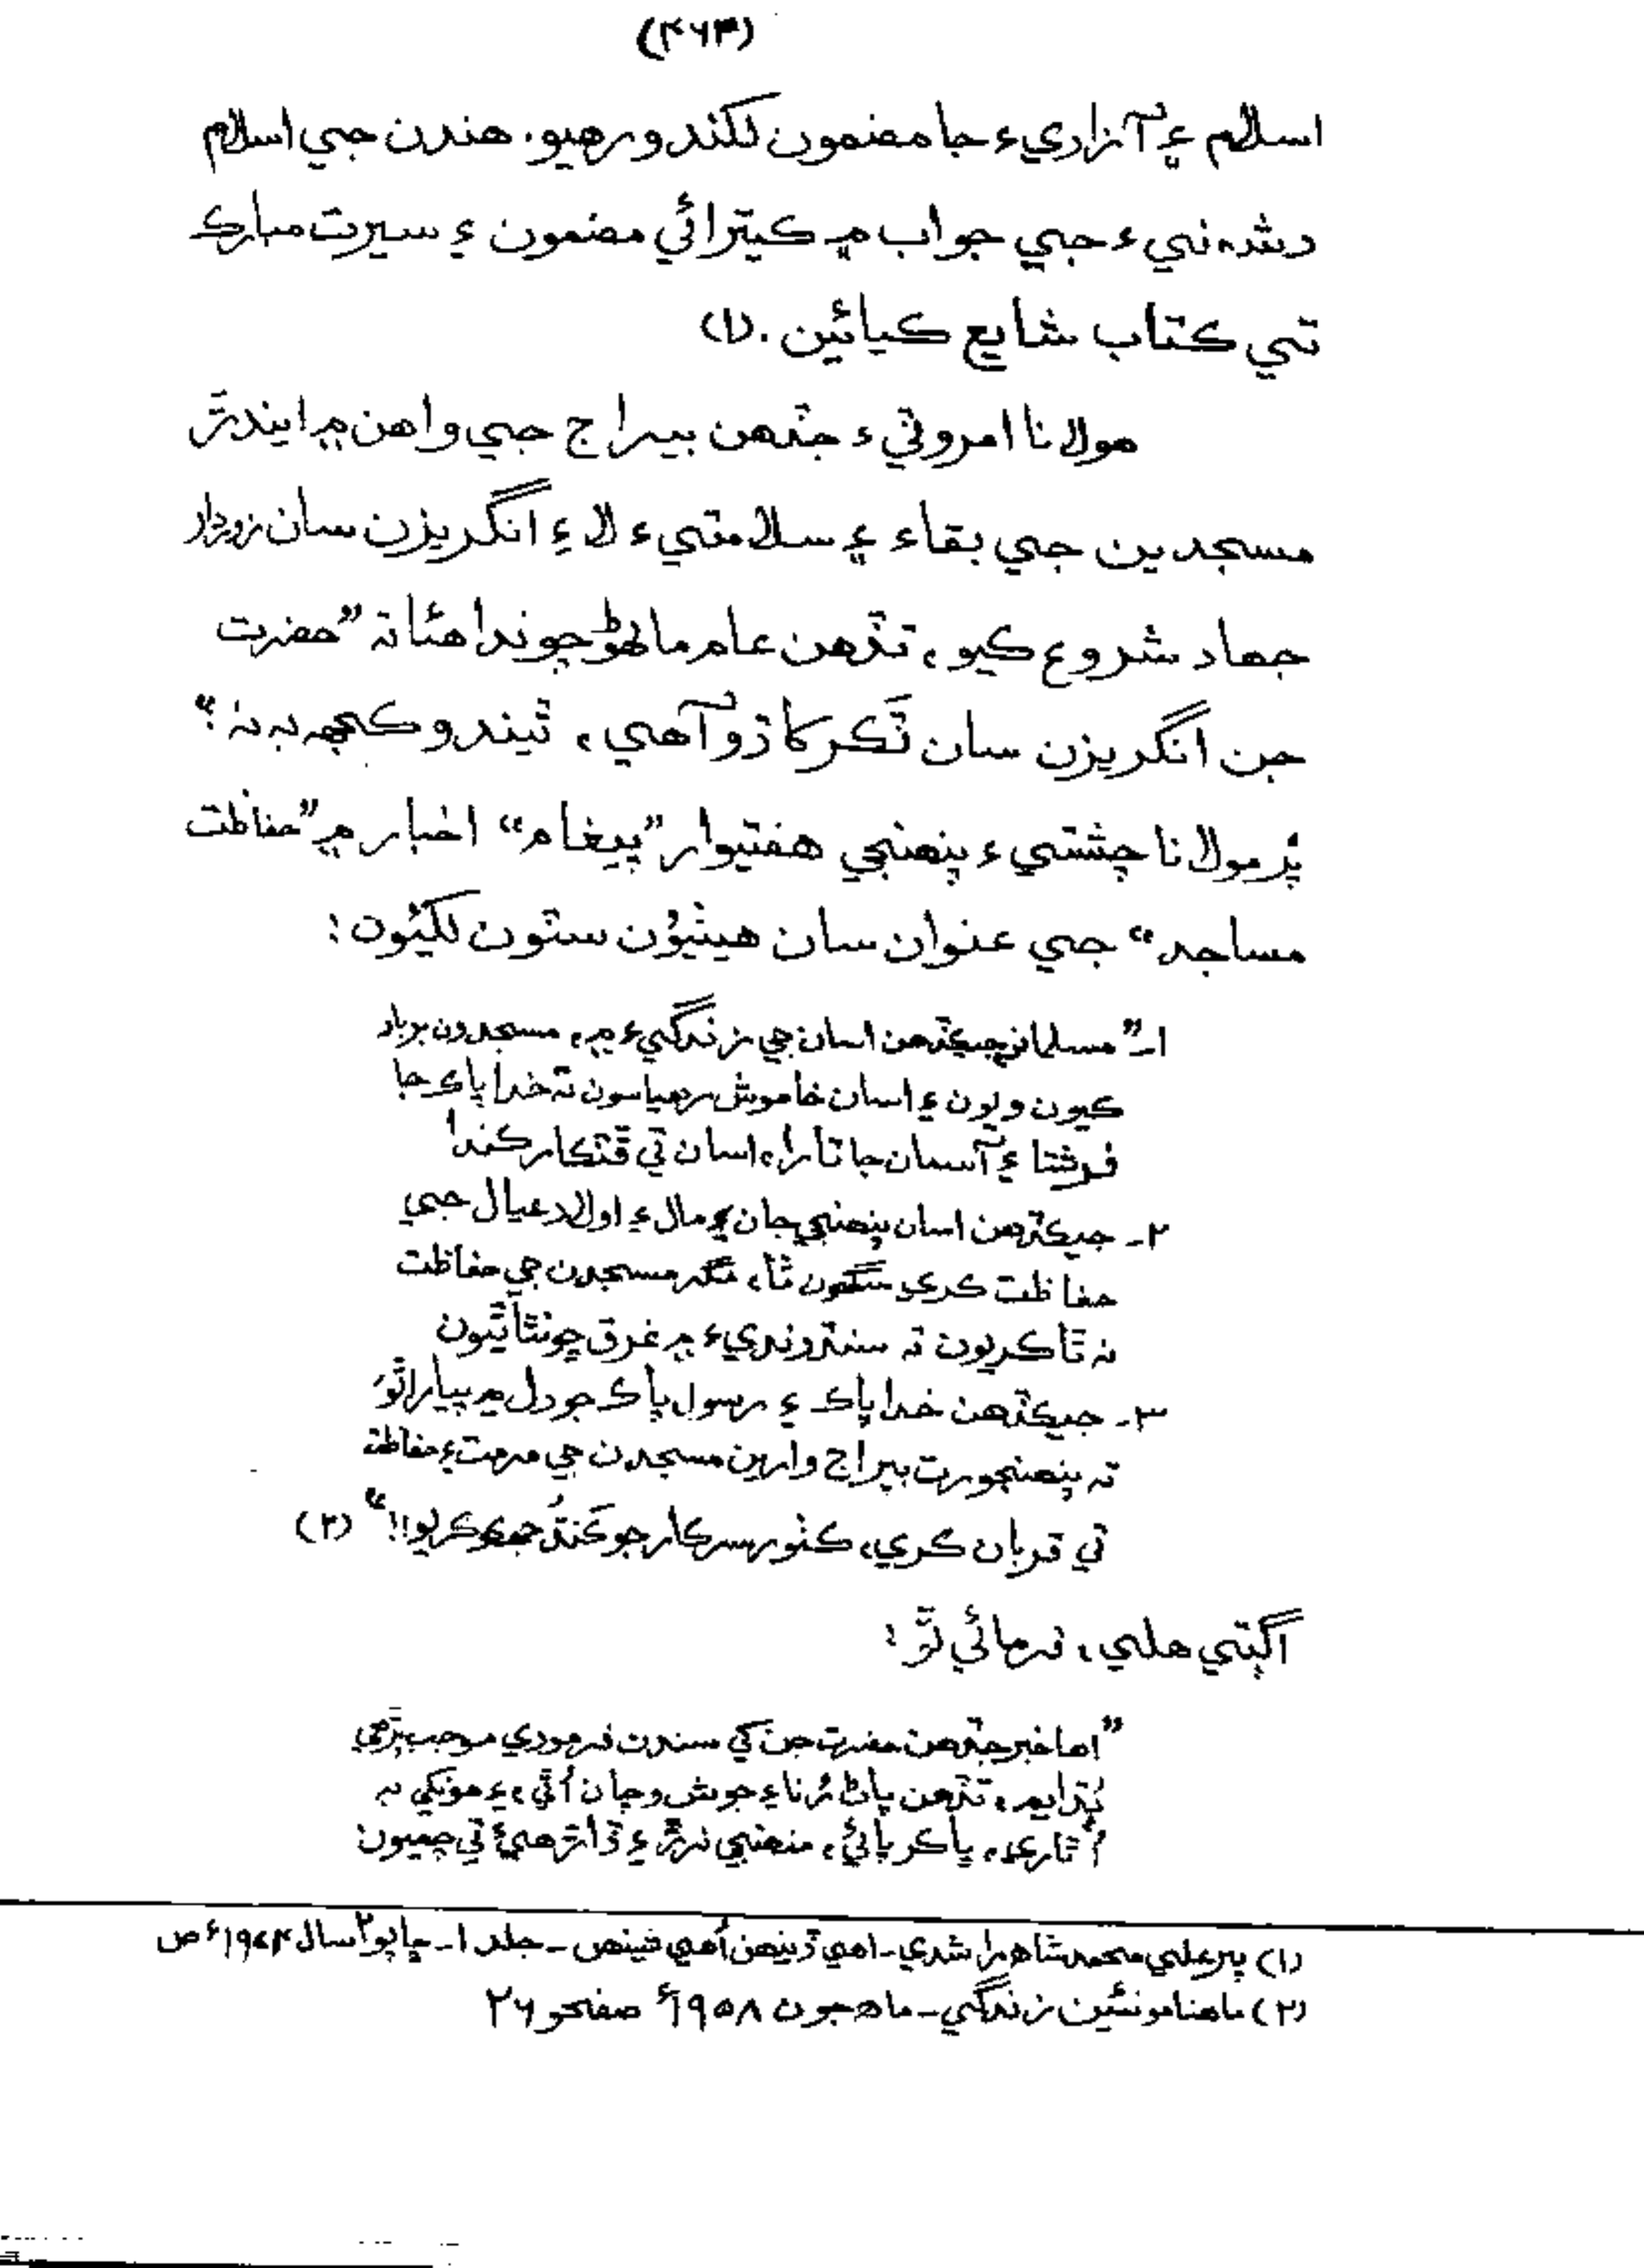 (۴۶۳)
اسلام ۽ آزاديءَ جا مضمون لکندو رهيو. هندن جي اسلام
دشمنيءَ جي جواب ۾ ڪيترائي مضمون ۽ سيرت مبارڪ
تي ڪتاب شايع ڪيائين. (۱)
مولانا امروٽيءَ جڏهن بيراج جي واهن ۾ ايندڙ
مسجدين جي بقاء ۽ سلامتيءَ لاءِ انگريزن سان زوردار
جهاد شروع ڪيو، تڏهن عام ماڻهو چوندا هئا ته ”حضرت
جن انگريزن سان ٽڪر کاڌو آهي، ٿيندو ڪجهه به نه؟“
پر مولانا چشتيءَ پنهنجي هفتيوار ”پيغام“ اخبار ۾ ”حفاظت
مساجد“ جي عنوان سان هيٺيون سٽون لکيون:
۱ـ ”مسلمانو جيڪڏهن اسان جي زندگيءَ ۾، مسجدون برباد
ڪيون ويون ۽ اسان خاموش رهياسون ته خدا پاڪ جا
فرشتا ۽ آسمان جا تارا، اسان تي ڦٽڪار ڪندا
۲ـ جيڪڏهن اسان پنهنجي جان ۽ مال ۽ اولاد عيال جي
حفاظت ڪري سگهون ٿا، مگر مسجدن جي حفاظت
نه ٿا ڪريون ته سنڌو نديءَ ۾ غرق ڇو نٿا ٿيون
۳ـ جيڪڏهن خدا پاڪ ۽ رسول پاڪ جو دل ۾ پيارا ٿو،
ته پنهنجو رت بيراج وارين مسجدن جي مرمت ۽ حفاظت
تي قربان ڪري، ڪٺور سرڪار جو ڪنڌ جهڪو ڪريو!!“ (۲)
اڳتي هلي، فرمائي ٿو:
”اها خبر جڏهن حضرت جن کي سندن فرمودي موجب پڙهي
ٻڌايم، تڏهن پاڻ رُنا ۽ جوش وچان اُٿي، ۽ مونکي به
اُٿاري، ڀاڪر پائي، منهنجي نرڙ ۽ ڏاڙهيءَ تي چميون
(۱) پير علي محمد شاهه راشدي ـ اهي ڏينهن اُهي شينهن ـ جلد ۱ ـ ڇاپو ۲ سال ۱۹۷۴ع ص
(۲) ماهنامو نئين زندگي ـ ماهه جون ۱۹۵۸ع صفحو ۲۶